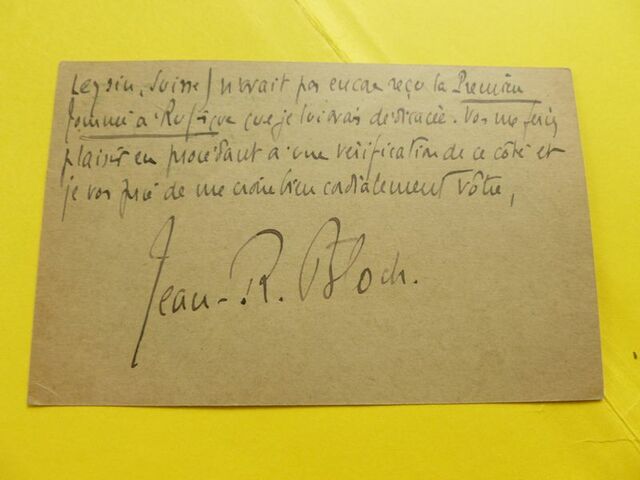 Leysin, Suisse) n'avait pas encore reçu la Première
Journée à Rufisque que je lui avais dédicacée. Vous me feriez
plaisir en procédant à une vérification de ce côté et
je vous prie de me croire bien cordialement vôtre,
Jean-R. Bloch.